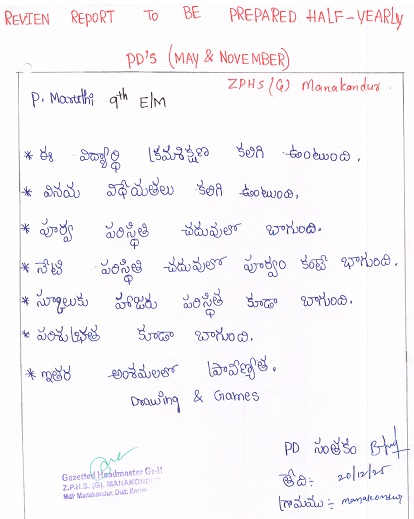 REVIEN REPORT TO BE PREPARED HALF-YEARLY
PD'S (MAY & NOVEMBER)
ZPHS (G) Manakondur.
P. Maruthi 9th E/M
* ఈ విద్యార్థి క్రమశిక్షణ కలిగి ఉంటుంది.
* వినయ విధేయతలు కలిగి ఉంటుంది,
* పూర్వ పరిస్థితి చదువులో బాగుంది.
* నేటి పరిస్థితి చదువులో పూర్వం కంటే బాగుంది.
* స్కూలుకు హాజరు పరిస్థితి కూడా బాగుంది.
* పరిశుభ్రత కూడా బాగుంది.
* ఇతర అంశములలో ప్రావిణ్యత.
Drawing & Games
PD సంతకం
Gazetted Headmaster Gr-II
Z.P.H.S. (G). MANAKONDUR
Mdl: Manakondur, Dist: Karim
తేది: 20/12/25
గ్రామము: manakondur